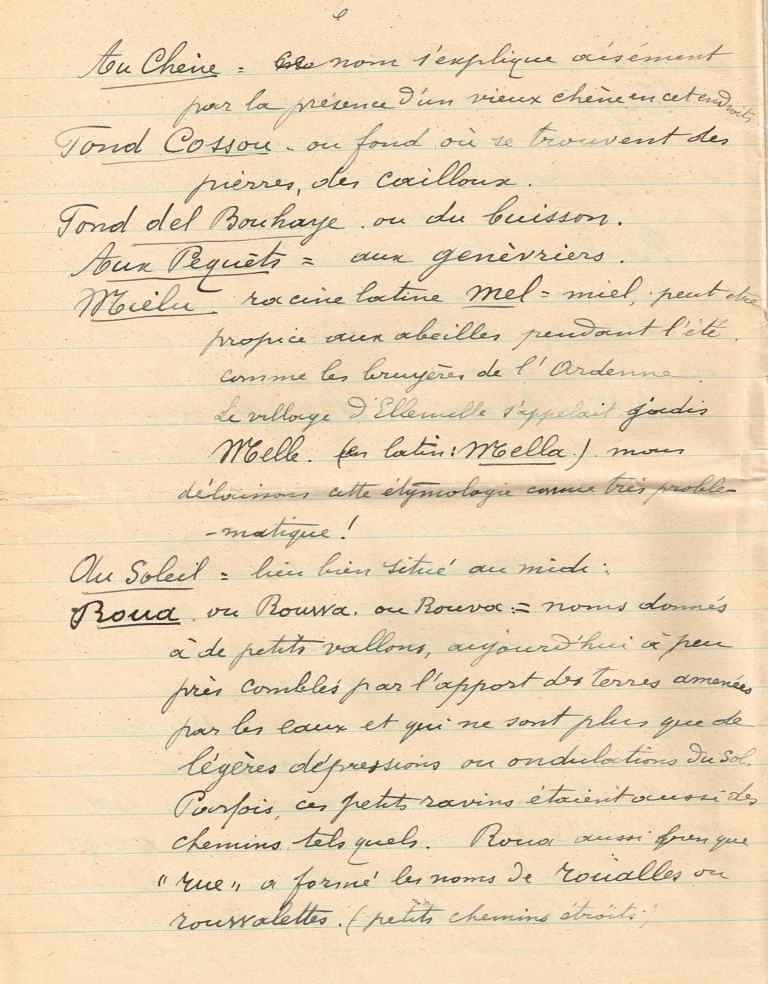 Au Chêne = nom s'explique aisément
par la présence d'un vieux chêne en cet endroit
Fond Cossou. ou fond où se trouvent des
pierres, des cailloux.
Fond del Bouhaye. ou du buisson.
Aux Pequêts = aux genèvriers.
Mielu racine latine mel = miel, peut être
propice aux abeilles pendant l'été.
comme les bruyères de l'Ardenne
Le village d'Ellemelle s'appelait jadis
Melle. (en latin: Mella.) nous
délaissons cette étymologie comme très problé-
-matique!
Au Soleil = lieu bien situé au midi.
Roua ou Rouwa. ou Rouva: = noms donnés
à de petits vallons, aujourd'hui à peu
près comblés par l'apport des terres amenées
par les eaux et qui ne sont plus que de
légères dépressions ou ondulations du sol.
Parfois, ces petits ravins étaient aussi des
chemins tels quels. Roua aussi bien que
"rue" a formé les noms de roualles ou
rouwalettes. (petits chemins étroits)